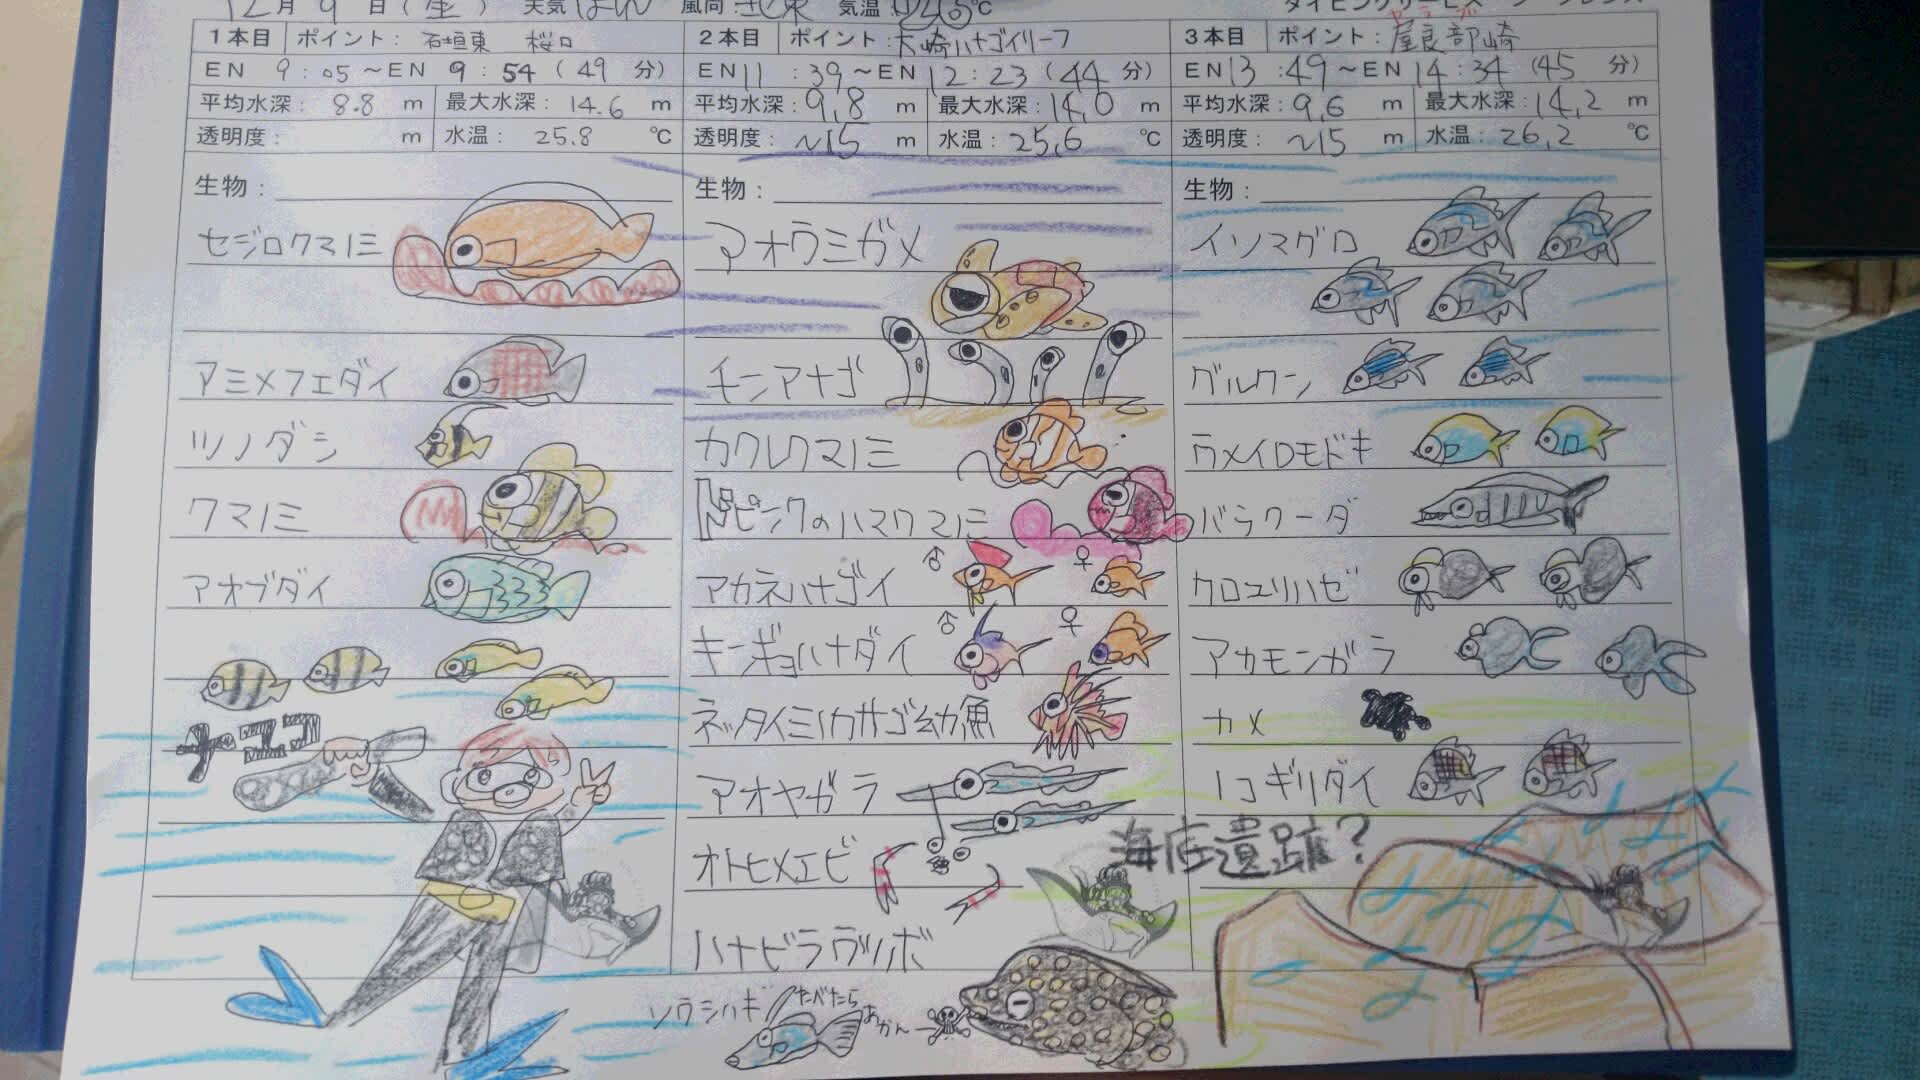 12月 9日(金) 天気 はれ 風向 北東 気温
1本目 ポイント: 石垣東 桜口
EN 9:05～EN 9:54(49 分)
平均水深: 8.8 m 最大水深: 14.6 m
透明度: m 水温: 25.8 ℃
生物:
セジロクマノミ
アミメフエダイ
ツノダシ
クマノミ
アオブダイ
ナユコ
2本目 ポイント: 大崎ハナゴイリーフ
EN11:39～EN 12:23(44 分)
平均水深: 9,8 m 最大水深: 14,0 m
透明度: ~15 m 水温: 25,6 ℃
生物:
アオウミガメ
チンアナゴ
カクレクマノミ
ドピンクのハマクマノミ
♂ ♀
アカネハナゴイ
♂ ♀
キンギョハナダイ
ネッタイミノカサゴ幼魚
アオヤガラ
オトヒメエビ
ハナビラウツボ
ソウシハギ たべたら
あかん
3本目 ポイント: 屋良部崎
EN13:49～EN 14:34 (45 分)
平均水深: 9,6 m 最大水深: 14,2 m
透明度: ~15 m 水温: 26,2 ℃
生物:
イソマグロ
グルクン
ウメイロモドキ
バラクーダ
クロユリハゼ
アカモンガラ
カメ
ノコギリダイ
海底遺跡?